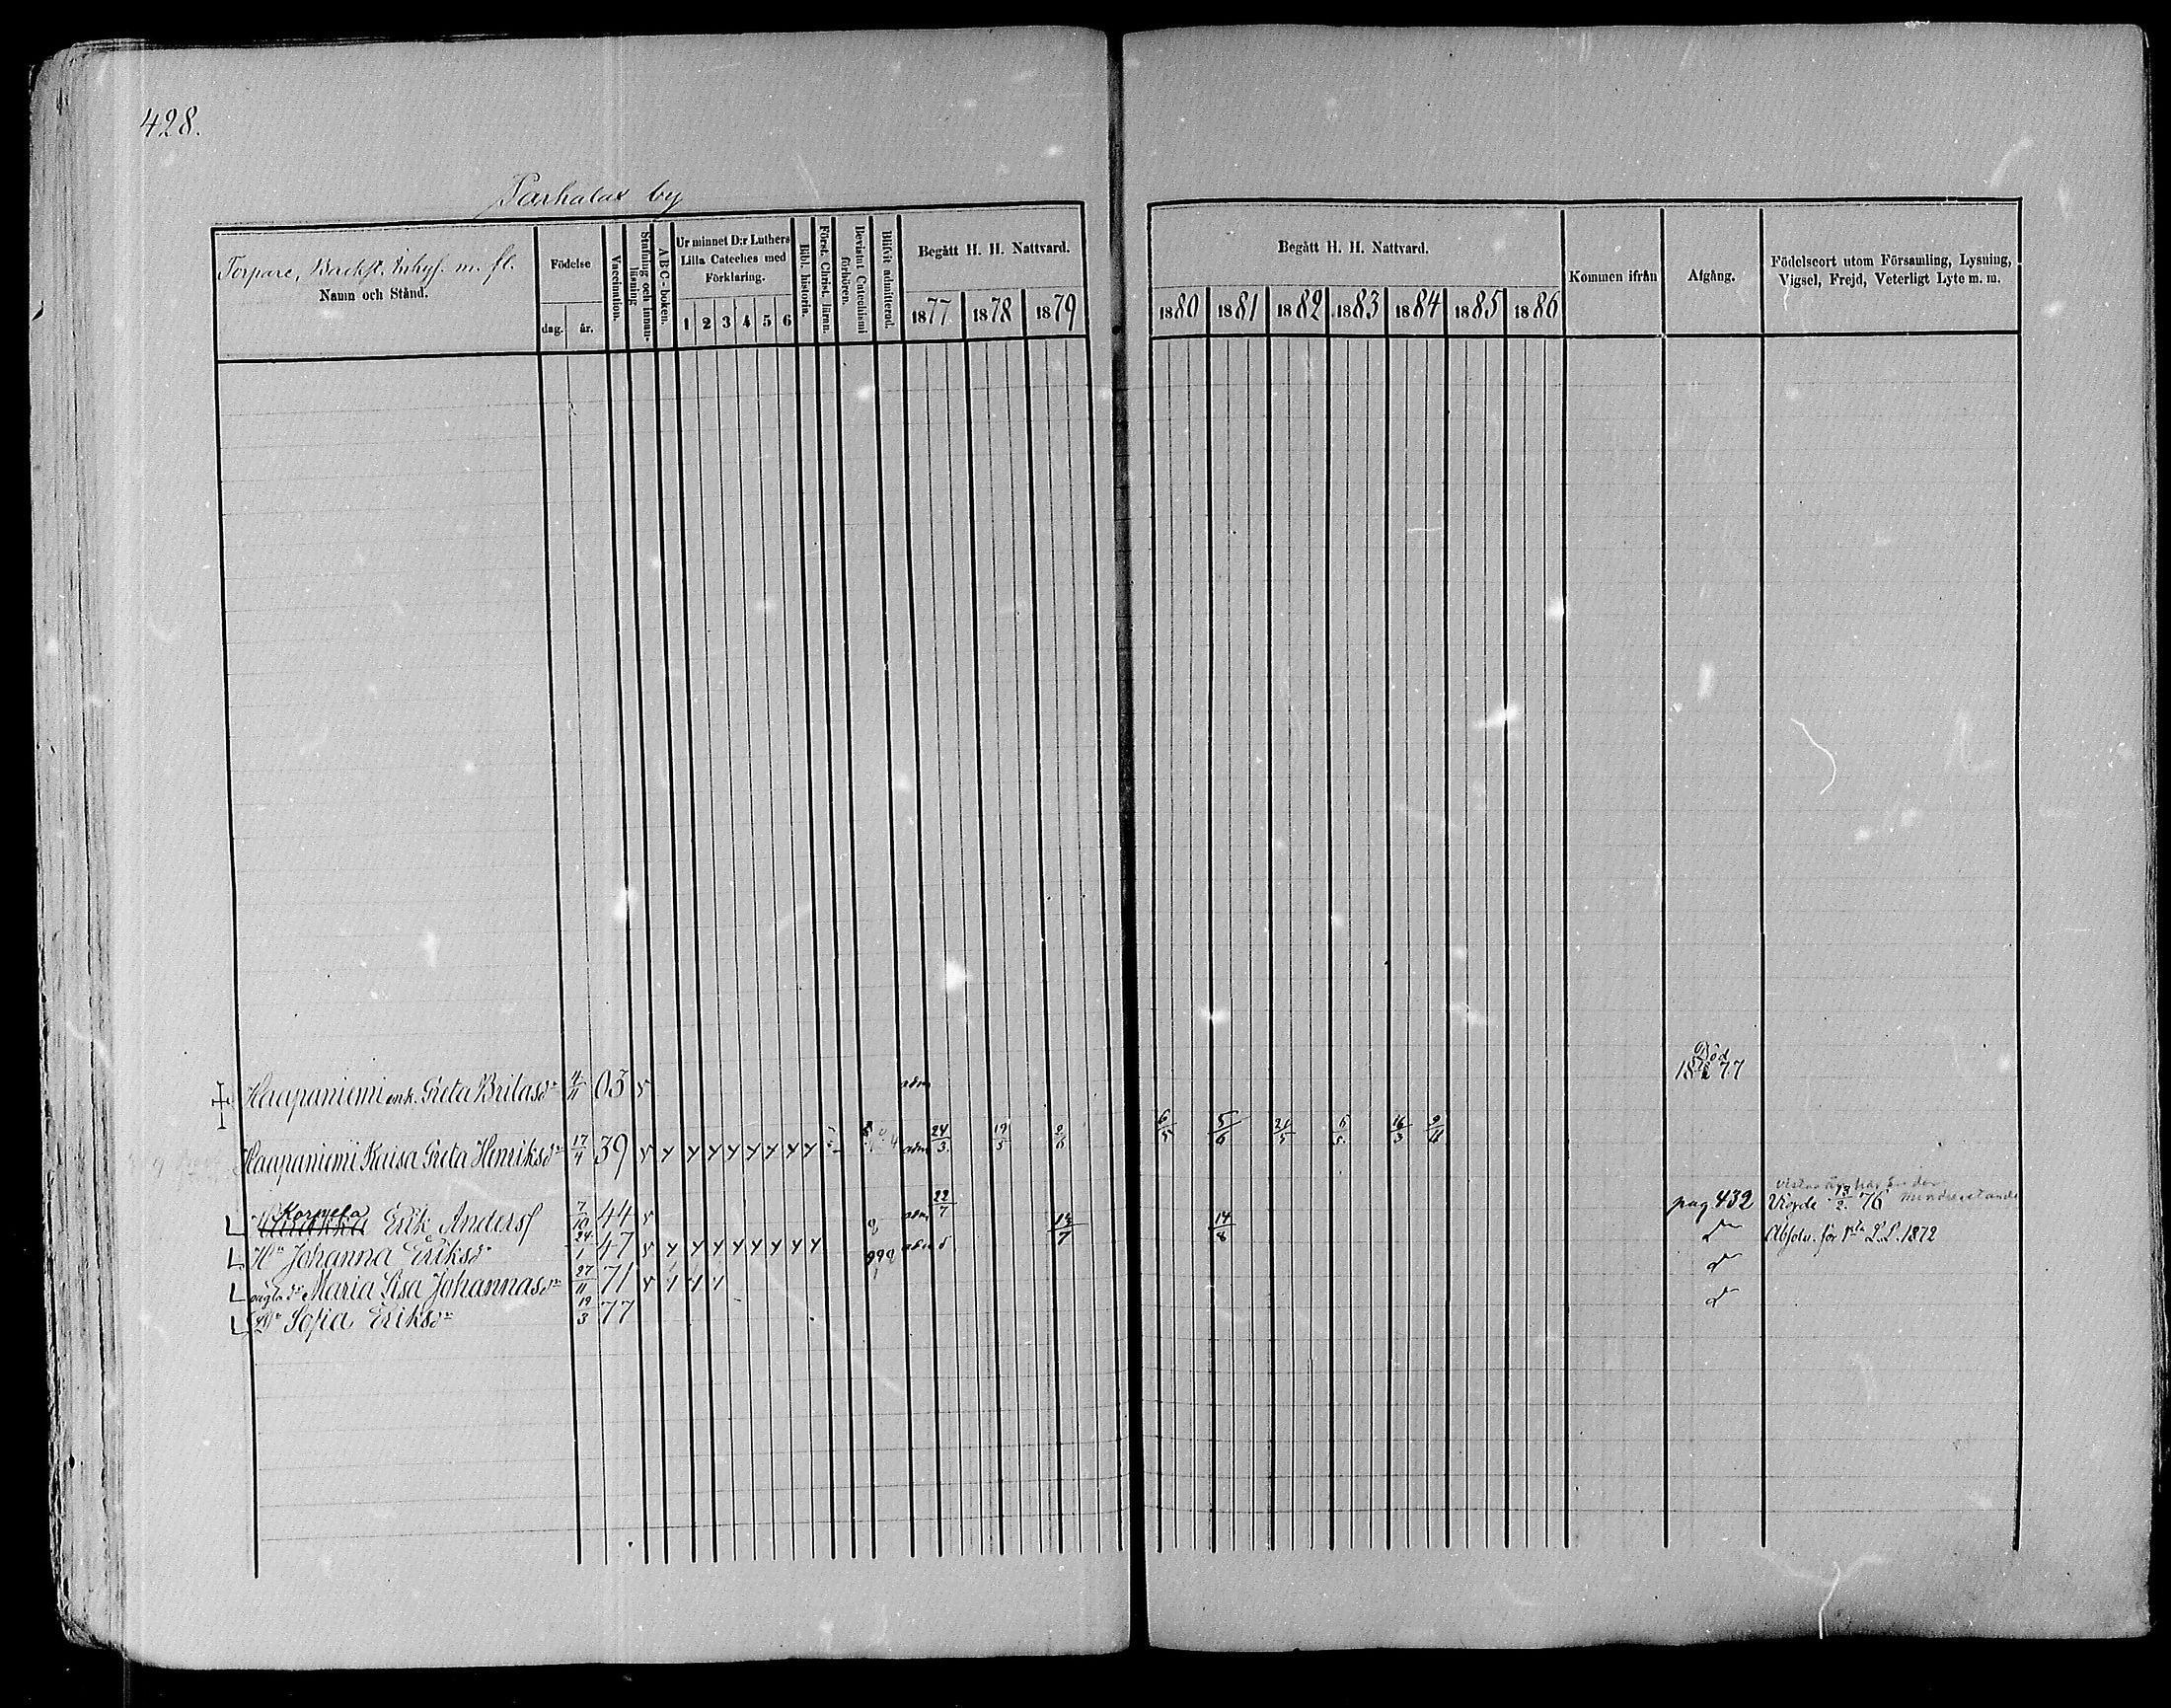 428.
Parhalax by
Torpare, Backst. Inhys. m. fl.
Namn och Stånd.
Födelse
dag. år.
Vaccination.
Stafning och innanläsning.
ABC-boken.
Ur minnet D:r Luthers Lilla Cateches med Förklaring.
1 2 3 4 5 6
Bibl. historia.
Först. Christ. läran.
Bevistat Catechismi förhören.
Blifvit admitterad.
Begått H. H. Nattvard.
1877 1878 1879
Begått H. H. Nattvard.
1880 1881 1882 1883 1884 1885 1886
Kommen ifrån
Afgång.
Födelseort utom Församling, Lysning, Vigsel, Frejd, Veterligt Lyte m. m.
Haapaniemi enk. Greta Britasdr 4/11 03 v adm Död 18 77
Haapaniemi Kaisa Greta Henriksdr 17/4 39 v y y y y y y y y adm 24/3 19/5 2/6 6/5 5/6 5/5 16/3 9/11
Korpela Erik Andersf 7/10 44 v adm 22/7 pag. 432 Vigde 13/2 76
Hu Johanna Eriksdr 24/1 47 v y y y y y y y y 14/7 14/8 Absolv. för 1sta L.S. 1872
oägta dr Maria Lisa Johannasdr 27/11 71 v
Dr Sofia Eriksdr 19/3 77